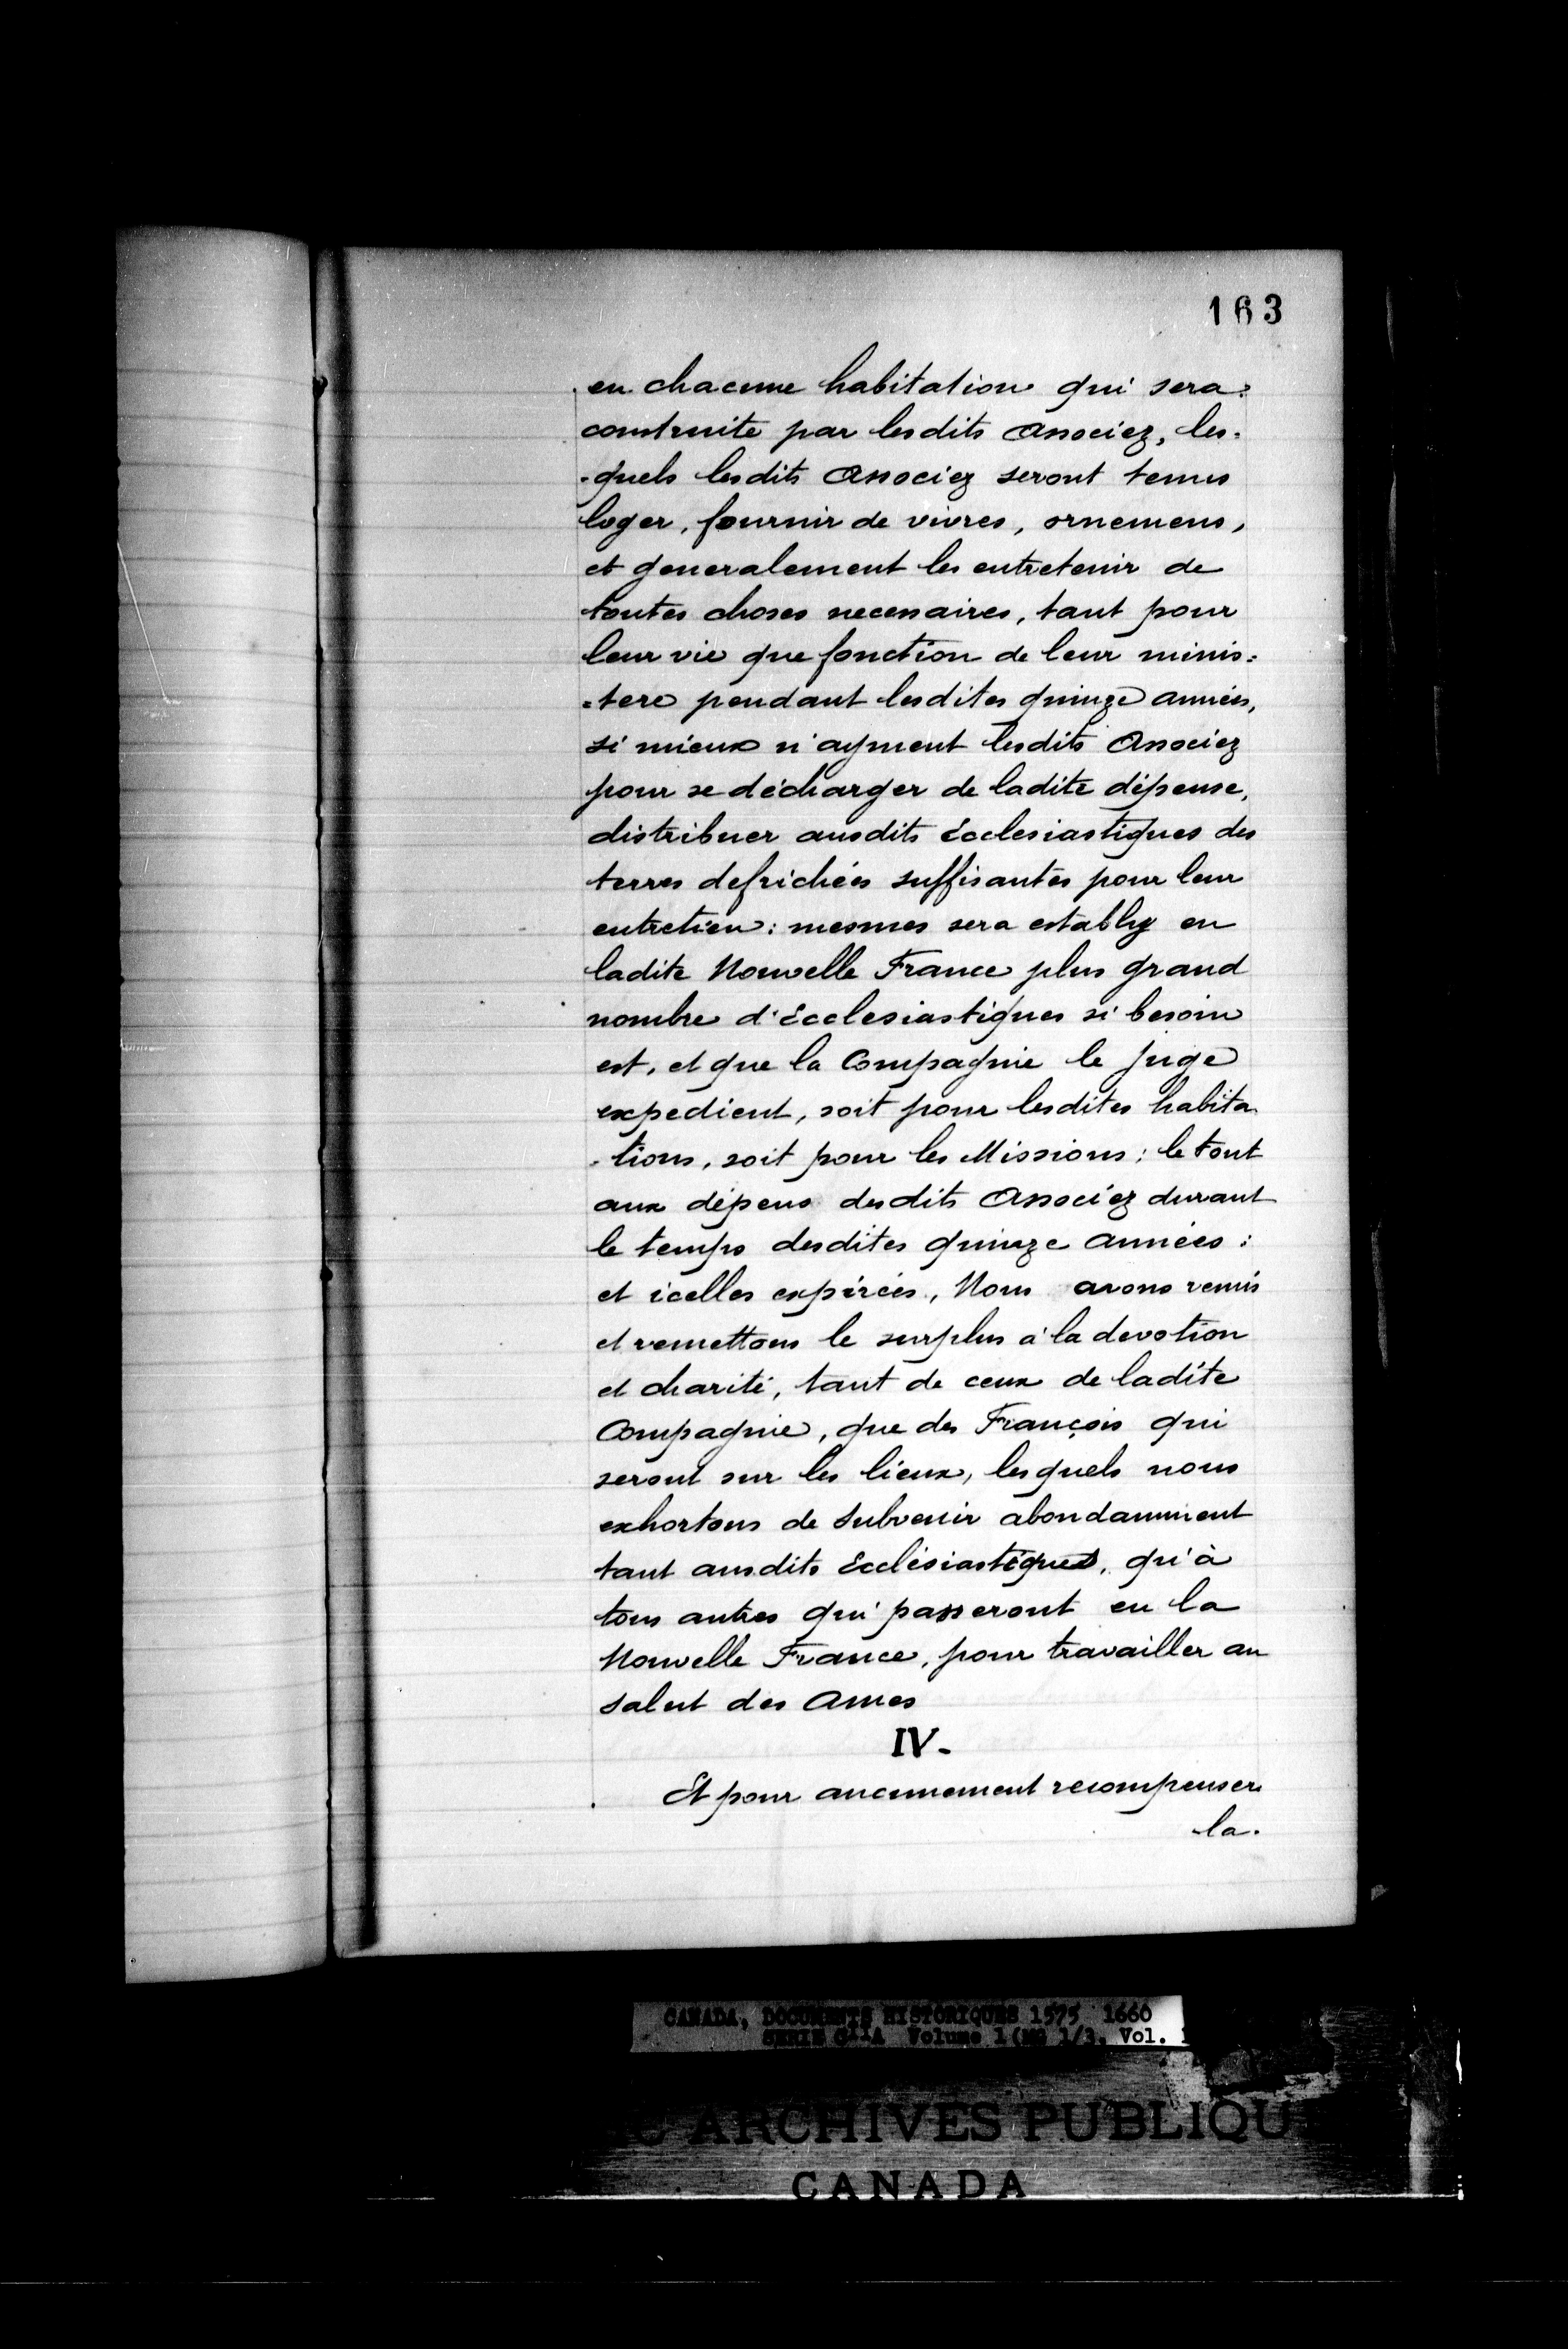 163
en chacune habitation qui sera
construite par lesdits Associez, les-
-quels lesdits Associez seront tenus
loger, fournir de vivres, ornemens,
et generalement les entretenir de
toutes choses necessaires, tant pour
leur vie que fonction de leur minis=
=tere pendant lesdites quinze années,
si mieux n'ayment lesdits Associez
pour se décharger de ladite dépense,
distribuer ausdits Ecclesiastiques des
terres defrichées suffisantes pour leur
entretien: mesmes sera estably en
ladite Nouvelle France plus grand
nombre d'Ecclesiastiques si besoin
est, et que la Compagnie le juge
expedient, soit pour lesdites habita
-tions, soit pour les Missions; le tout
aux dépens desdits Associez durant
le temps desdites quinze années:
et icelles expirées, Nous avons remis
et remettons le surplus à la devotion
et charité, tant de ceux de ladite
Compagnie, que des François qui
seront sur les lieux, lesquels nous
exhortons de subvenir abondamment
tant ausdits Ecclésiastiques, qu'à
tous autres qui passeront en la
Nouvelle France, pour travailler au
salut des Ames
IV-
Et pour aucunement recompenser
la.
CANADA, DOCUMENTS HISTORIQUES 1575 1660
SERIE C11A Volume 1 (MG 1/3, Vol. 1
ARCHIVES PUBLIQU
CANADA